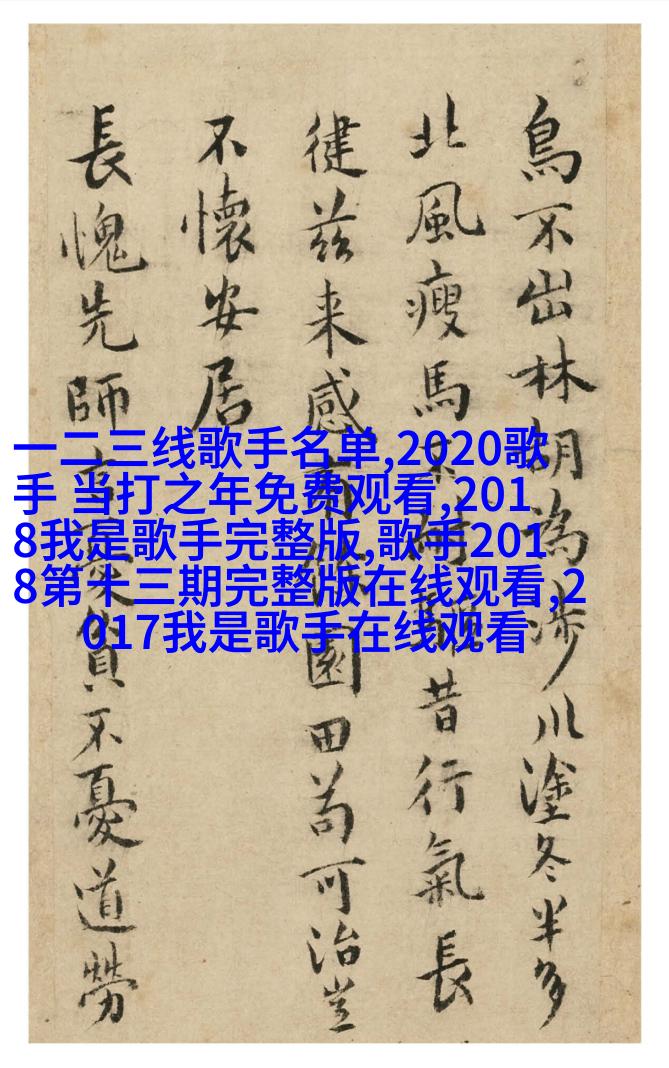 鳥不出林胡為涉川塗冬半多
北風瘦馬不驅昔行氣長
健茲来感園田苟可治豈
不懷安居
長愧先師貧不憂道勞
一二三线歌手名单,2020歌
手 当打之年免费观看,201
8我是歌手完整版,歌手201
8第十三期完整版在线观看,2
017我是歌手在线观看